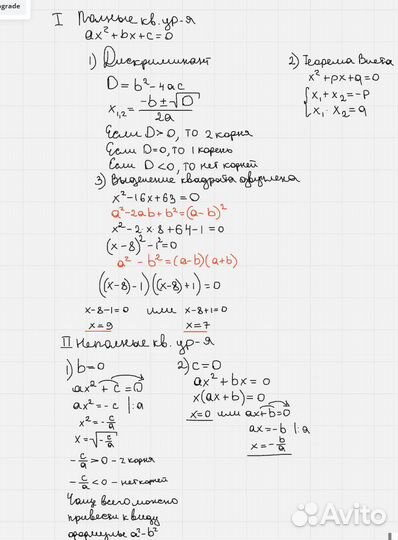 ograde
I Полные кв. ур-я
ax² + bx + c = 0
1) Дискриминант
D = b² - 4ac
x₁,₂ = (-b ± √D) / 2a
Если D > 0, то 2 корня
Если D = 0, то 1 корень
Если D < 0, то нет корней
2) Теорема Виета
x² + px + q = 0
{ x₁ + x₂ = -p
x₁ · x₂ = q
3) Выделение квадрата двучлена
x² - 16x + 63 = 0
a² - 2ab + b² = (a - b)²
x² - 2·x·8 + 64 - 1 = 0
(x - 8)² - 1² = 0
a² - b² = (a - b)(a + b)
((x-8) - 1)((x-8) + 1) = 0
x - 8 - 1 = 0 или x - 8 + 1 = 0
x = 9 x = 7
II Неполные кв. ур-я
1) b = 0
ax² + c = 0
ax² = -c |:a
x² = -c/a
x = √(-c/a)
-c/a > 0 - 2 корня
-c/a < 0 - нет корней
Чаще всего можно
привести к виду
формулы a² - b²
2) c = 0
ax² + bx = 0
x(ax + b) = 0
x = 0 или ax + b = 0
ax = -b |:a
x = -b/a
Avito